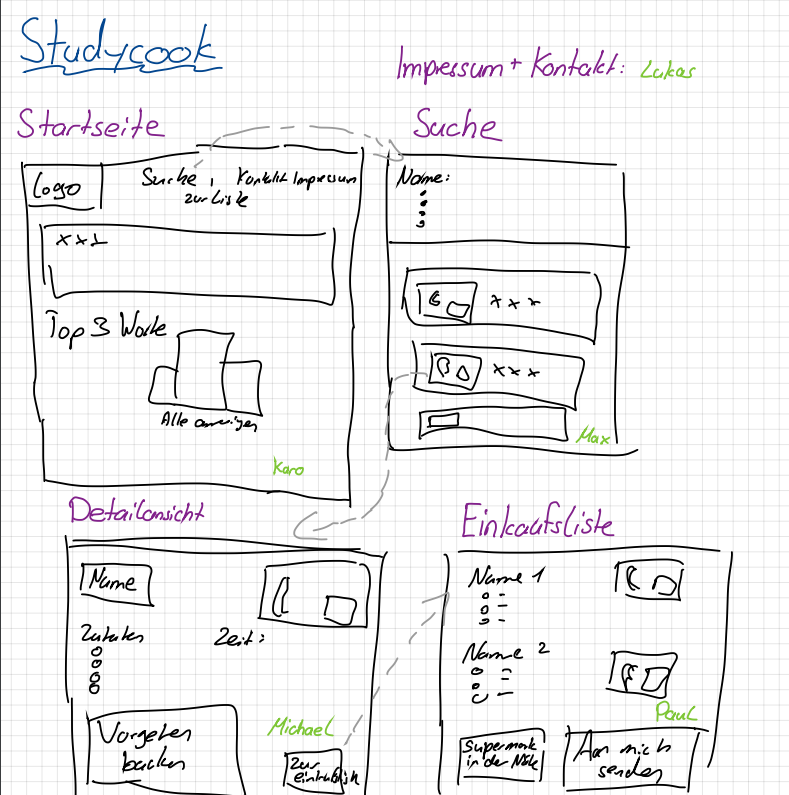 Studycook
Impressum + Kontakt: Lukas
Startseite
Logo
Suche, Kontakt Impressum
zur Liste
xx1
Top 3 Woche
Alle anzeigen
Karo
Suche
Name:
xxx
xxx
Max
Detailansicht
Name
Zutaten
Zeit:
Vorgehen
backen
Michael
Zur
Einkaufsliste
Name 1
Name 2
Paul
Supermark
in der Nähe
An mich
senden